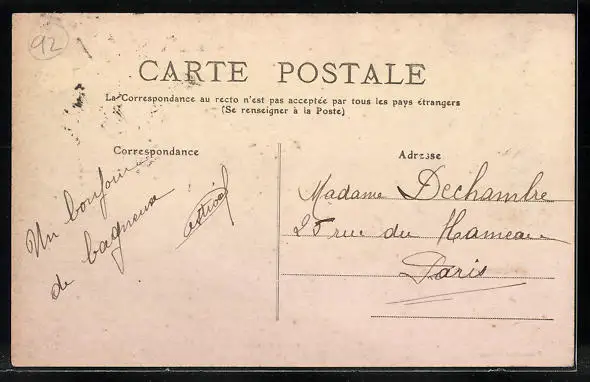 92
CARTE POSTALE
La Correspondance au recto n'est pas acceptée par tous les pays étrangers
(Se renseigner à la Poste)
Correspondance
Adresse
Un bonjour
de bagneux
Madame Dechambre
25 rue du Hameau
Paris